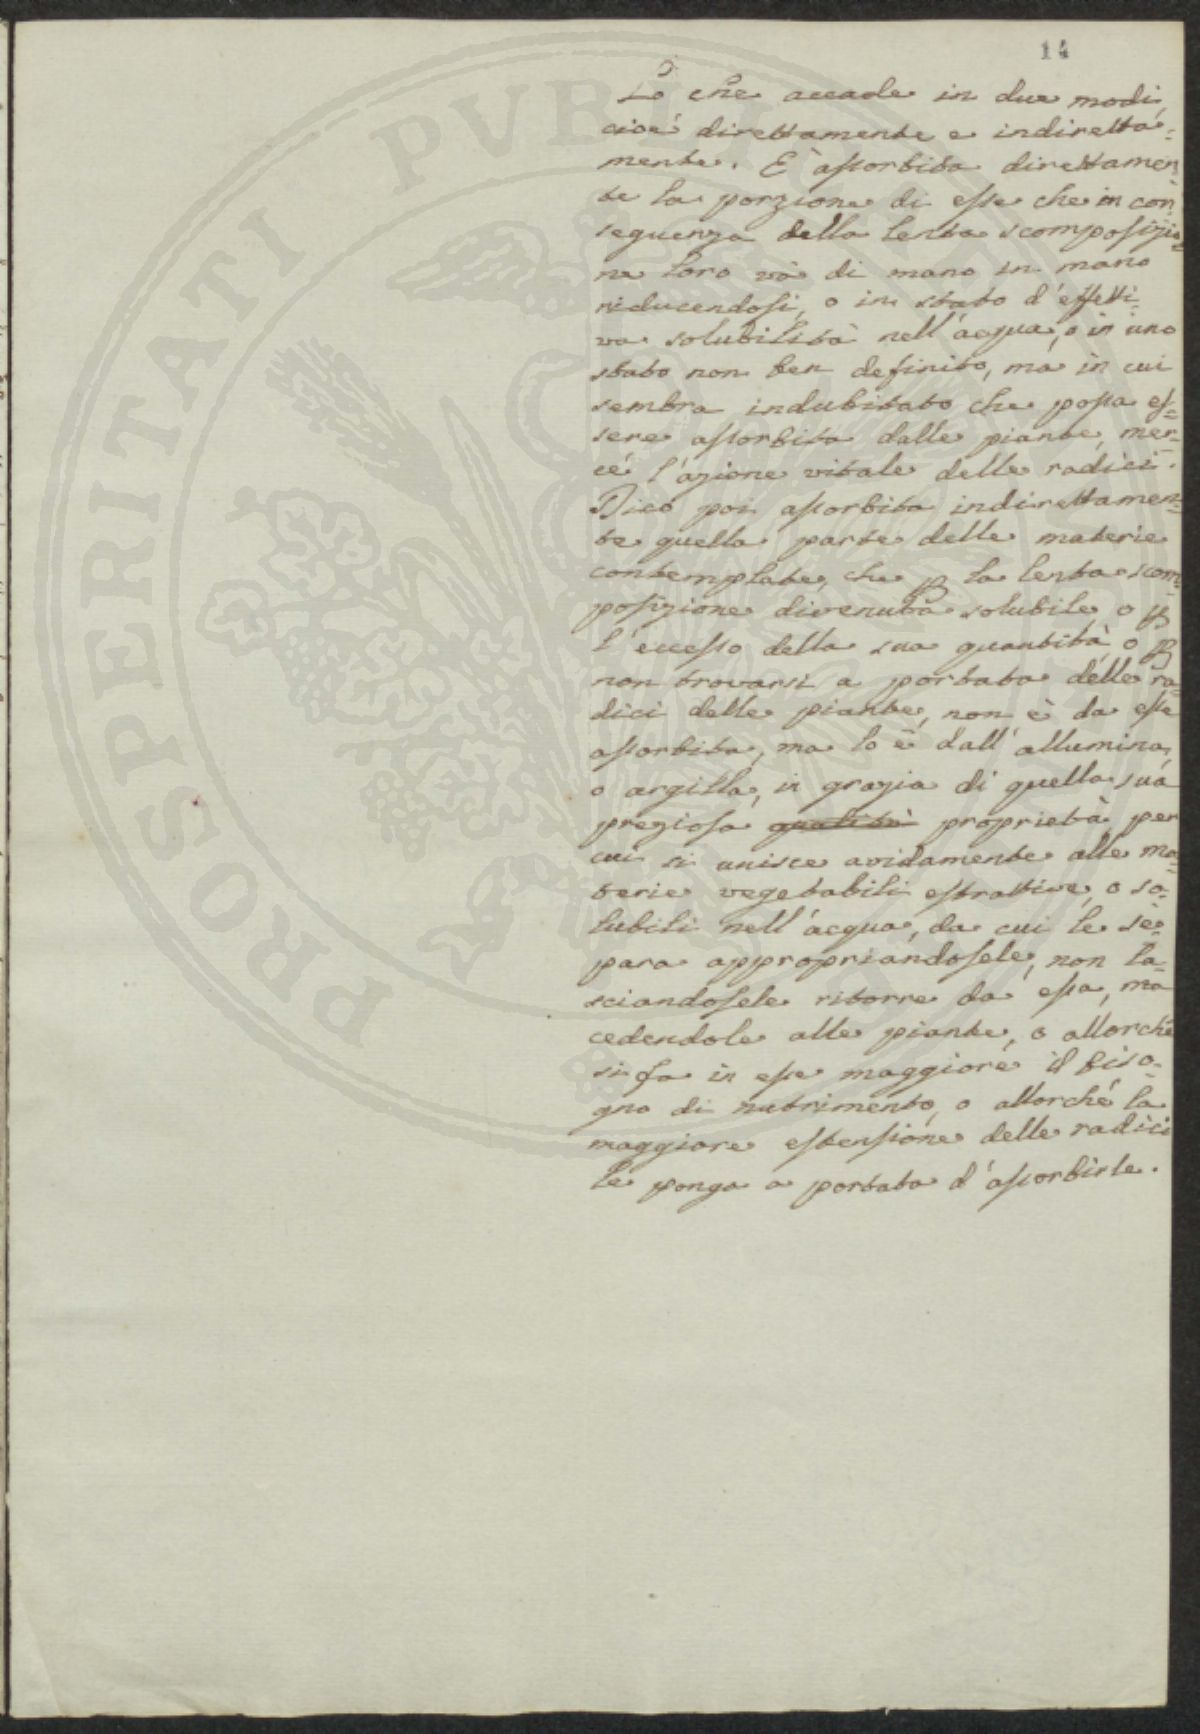 14
Lo che accade in due modi,
cioè direttamente e indiretta=
mente. È assorbita direttamen=
te la porzione di esse che in con=
seguenza della lenta scomposizio=
ne loro và di mano in mano
riducendosi, o in stato d'effetti=
va solubilità nell'acqua, o in uno
stato non ben definito, ma in cui
sembra indubitato che possa es=
sere assorbita dalle piante, mer=
cé l'azione vitale delle radici.
Dico poi assorbita indirettamen=
te quella parte delle materie
contemplate, che p la lenta scom=
posizione divenuta solubile, o p
l'eccesso della sua quantità, o p
non trovarsi a portata delle ra=
dici delle piante, non è da esse
assorbita, ma lo è dall'allumina,
o argilla, in grazia di quella sua
preziosa qualità proprietà, per
cui si unisce avidamente alle ma=
terie vegetabili estrattive, o so=
lubili nell'acqua, da cui le se=
para appropriandosele, non la=
sciandosele ritorre da essa, ma
cedendole alle piante, o allorché
si fa in esse maggiore il biso=
gno di nutrimento, o allorché la
maggiore estensione delle radici
le ponga a portata d'assorbirle.
PROSPERITATI PUBLI